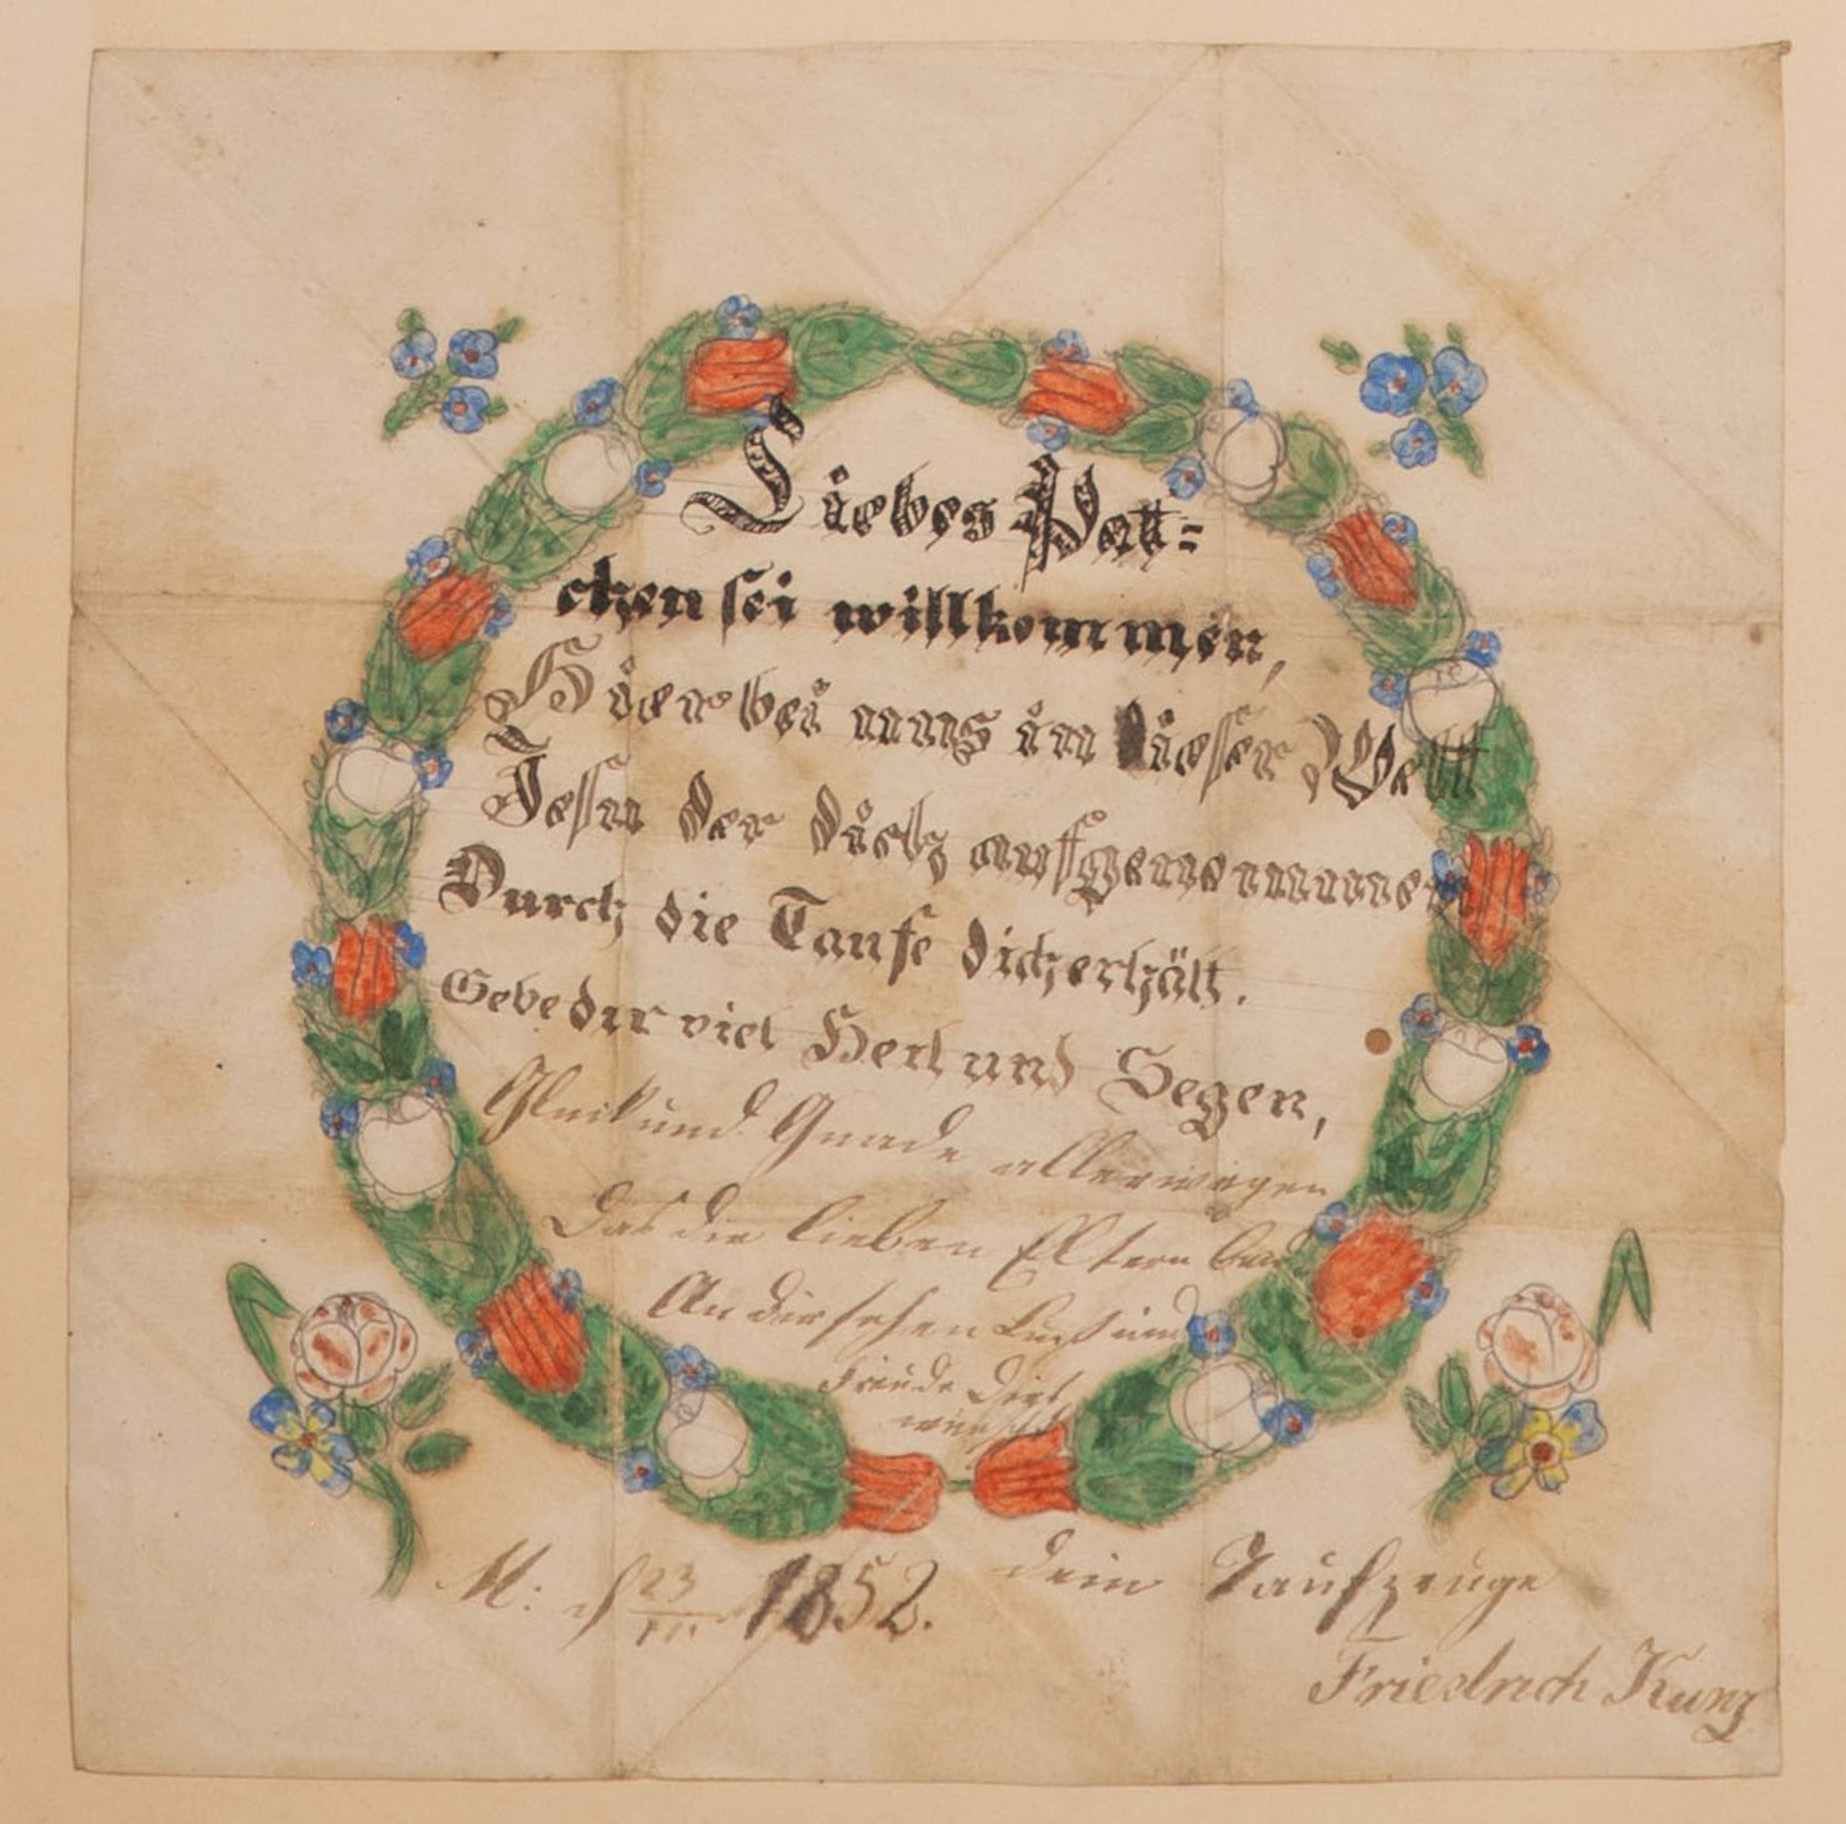 Liebes Patt=
chen sei willkommen,
Hier bei uns in dieser Welt
Jesu der dich aufgenommen
Durch die Taufe dich erhält.
Gebe dir viel Heil und Segen,
Glück und Gnade allerwegen
Das die lieben Eltern
An dir sehen Lust und
Freude Dies
wünscht
M: d 23 1852. dein Taufzeuge
Friedrich Kunz